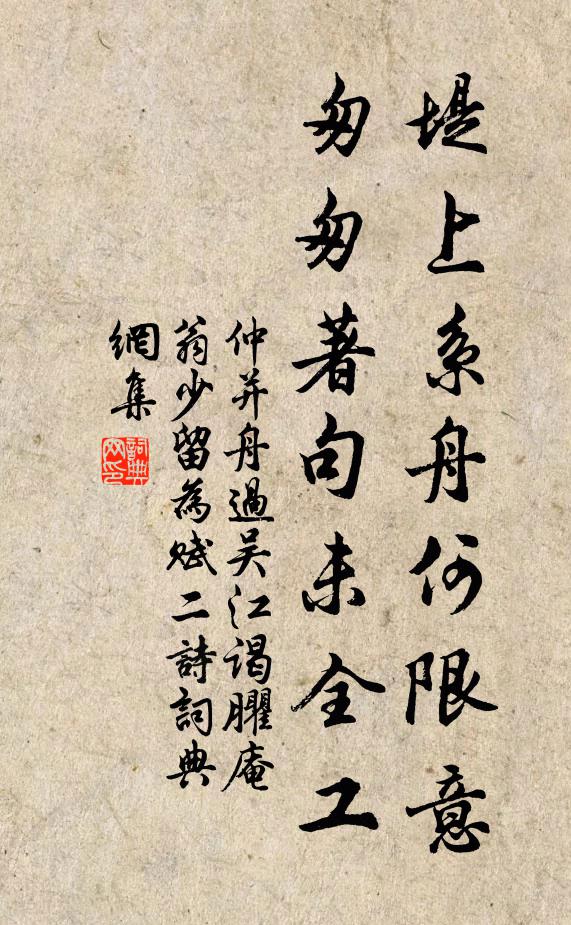 堤上系舟何限意
匆匆著句未全工
仲并舟過吴江谒臞庵
翁少留為赋二詩詞典
網集
詞典
网印